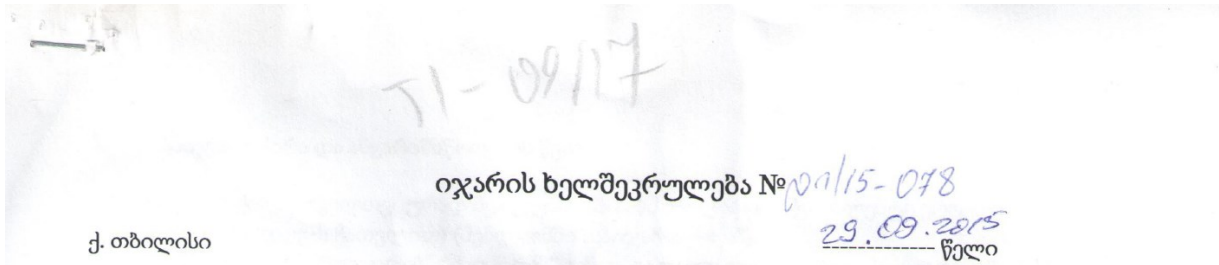 TI - 09/17
იჯარის ხელშეკრულება № 01/15-078
ქ. თბილისი
29.09.2015 წელი